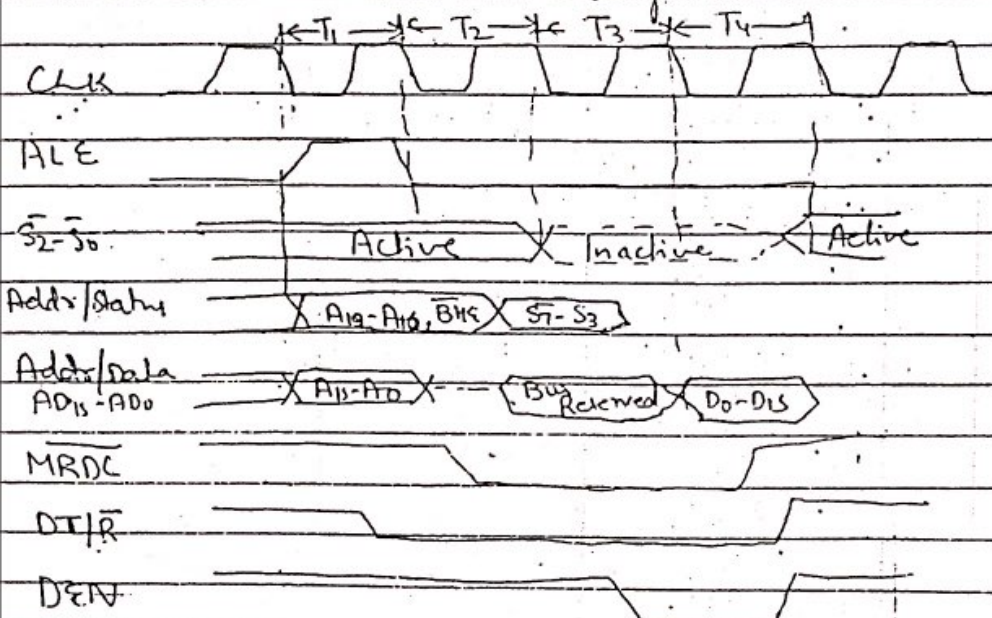 T₁ T₂ T₃ T₄
Clk
ALE
S̅₂-S̅₀ Active Inactive Active
Addr/Status A₁₉-A₁₆, B̅H̅E̅ S₇-S₃
Addr/Data A₁₅-A₀ Bus Reserved D₀-D₁₅
AD₁₅-AD₀
M̅R̅D̅C̅
DT/R̅
DEN